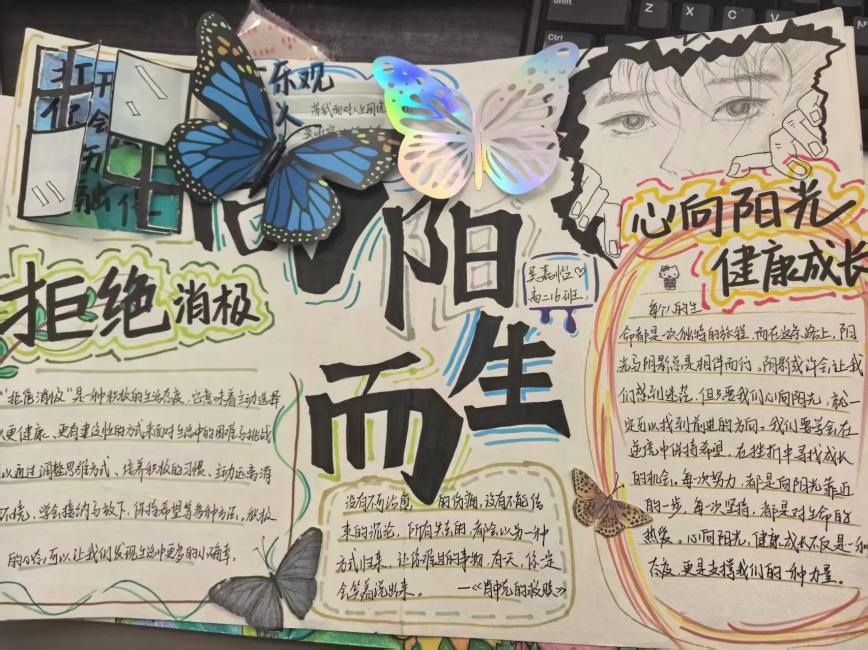 打开
你
会
万
融化
乐观
人
向阳
而生
吴嘉
高二16班
心向阳光
健康成长
拒绝消极
"拒绝消极"是一种积极的生活态度,它意味着主动选择
更健康、更有建设性的方式来面对生活中的困难与挑战
以通过调整思维方式、培养积极的习惯、主动远离消
环境、学会接纳与放下、保持希望等各种方法,积极
的心态,可以让我们发现生活中更多的小确幸。
没有不可治愈的伤痛,没有不能结
束的沉沦,所有失去的,都会以另一种
方式归来,让你难过的事物,有天,你一定
会笑着说出来。——《肖申克的救赎》
每个人的生
命都是一次独特的旅程,而在这条路上,阳
光与阴影总是相伴而行,阴影或许会让我
们感到迷茫,但只要我们心向阳光,就一
定可以找到前进的方向。我们要学会在
逆境中保持希望,在挫折中寻找成长
的机会,每次努力,都是向阳光靠近
的一步,每次坚持,都是对生命的
热爱。心向阳光,健康成长不仅是一种
态度,更是支撑我们的一种力量。
Shift
Z
X
C
V
Ctrl